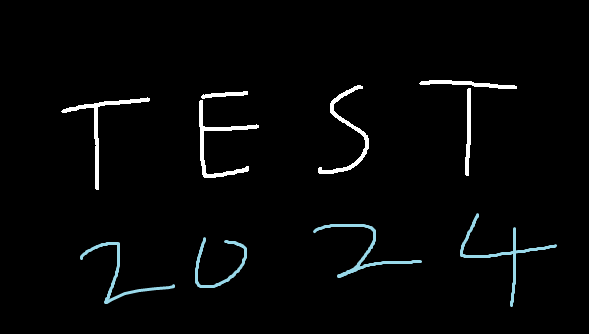 TEST
2024